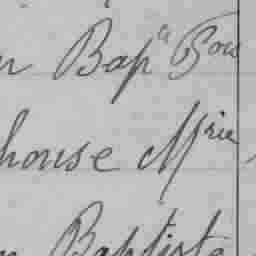 n Bapᵗᵉ Bou
house Mʳⁱᵉ
n Baptiste